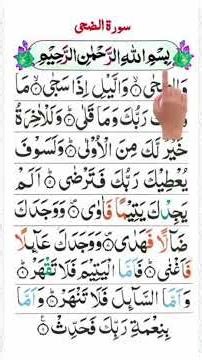 سورة الضحى
بِسْمِ اللهِ الرَّحْمٰنِ الرَّحِيْمِ
وَالَّيْلِ اِذَا سَجٰى ۝ مَا
رَبُّكَ وَمَا قَلٰى ۝ وَلَلْاٰخِرَةُ
خَيْرٌ لَّكَ مِنَ الْاُوْلٰى ۝ وَلَسَوْفَ
يُعْطِيْكَ رَبُّكَ فَتَرْضٰى ۝ اَلَمْ
يَجِدْكَ يَتِيْمًا فَاٰوٰى ۝ وَوَجَدَكَ
ضَآلًّا فَهَدٰى ۝ وَوَجَدَكَ عَآئِلًا
فَاَغْنٰى ۝ فَاَمَّا الْيَتِيْمَ فَلَا تَقْهَرْ ۝
وَاَمَّا السَّآئِلَ فَلَا تَنْهَرْ ۝ وَاَمَّا
بِنِعْمَةِ رَبِّكَ فَحَدِّثْ ۝